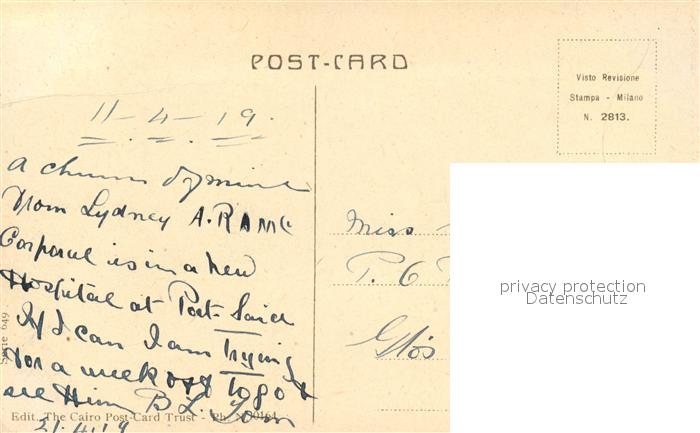 POST-CARD
Visto Revisione
Stampa - Milano
N. 2813.
11-4-19.
A chum of mine
From Lydney A. RAMC
Corporal is in a new
Hospital at Port-Said
If I can I am Trying
For a week off To go &
see Him B. L. Tom
21.4.19
Miss
P. O
Glos
privacy protection
Datenschutz
Serie 649
Edit. The Cairo Post-Card Trust - Ph.